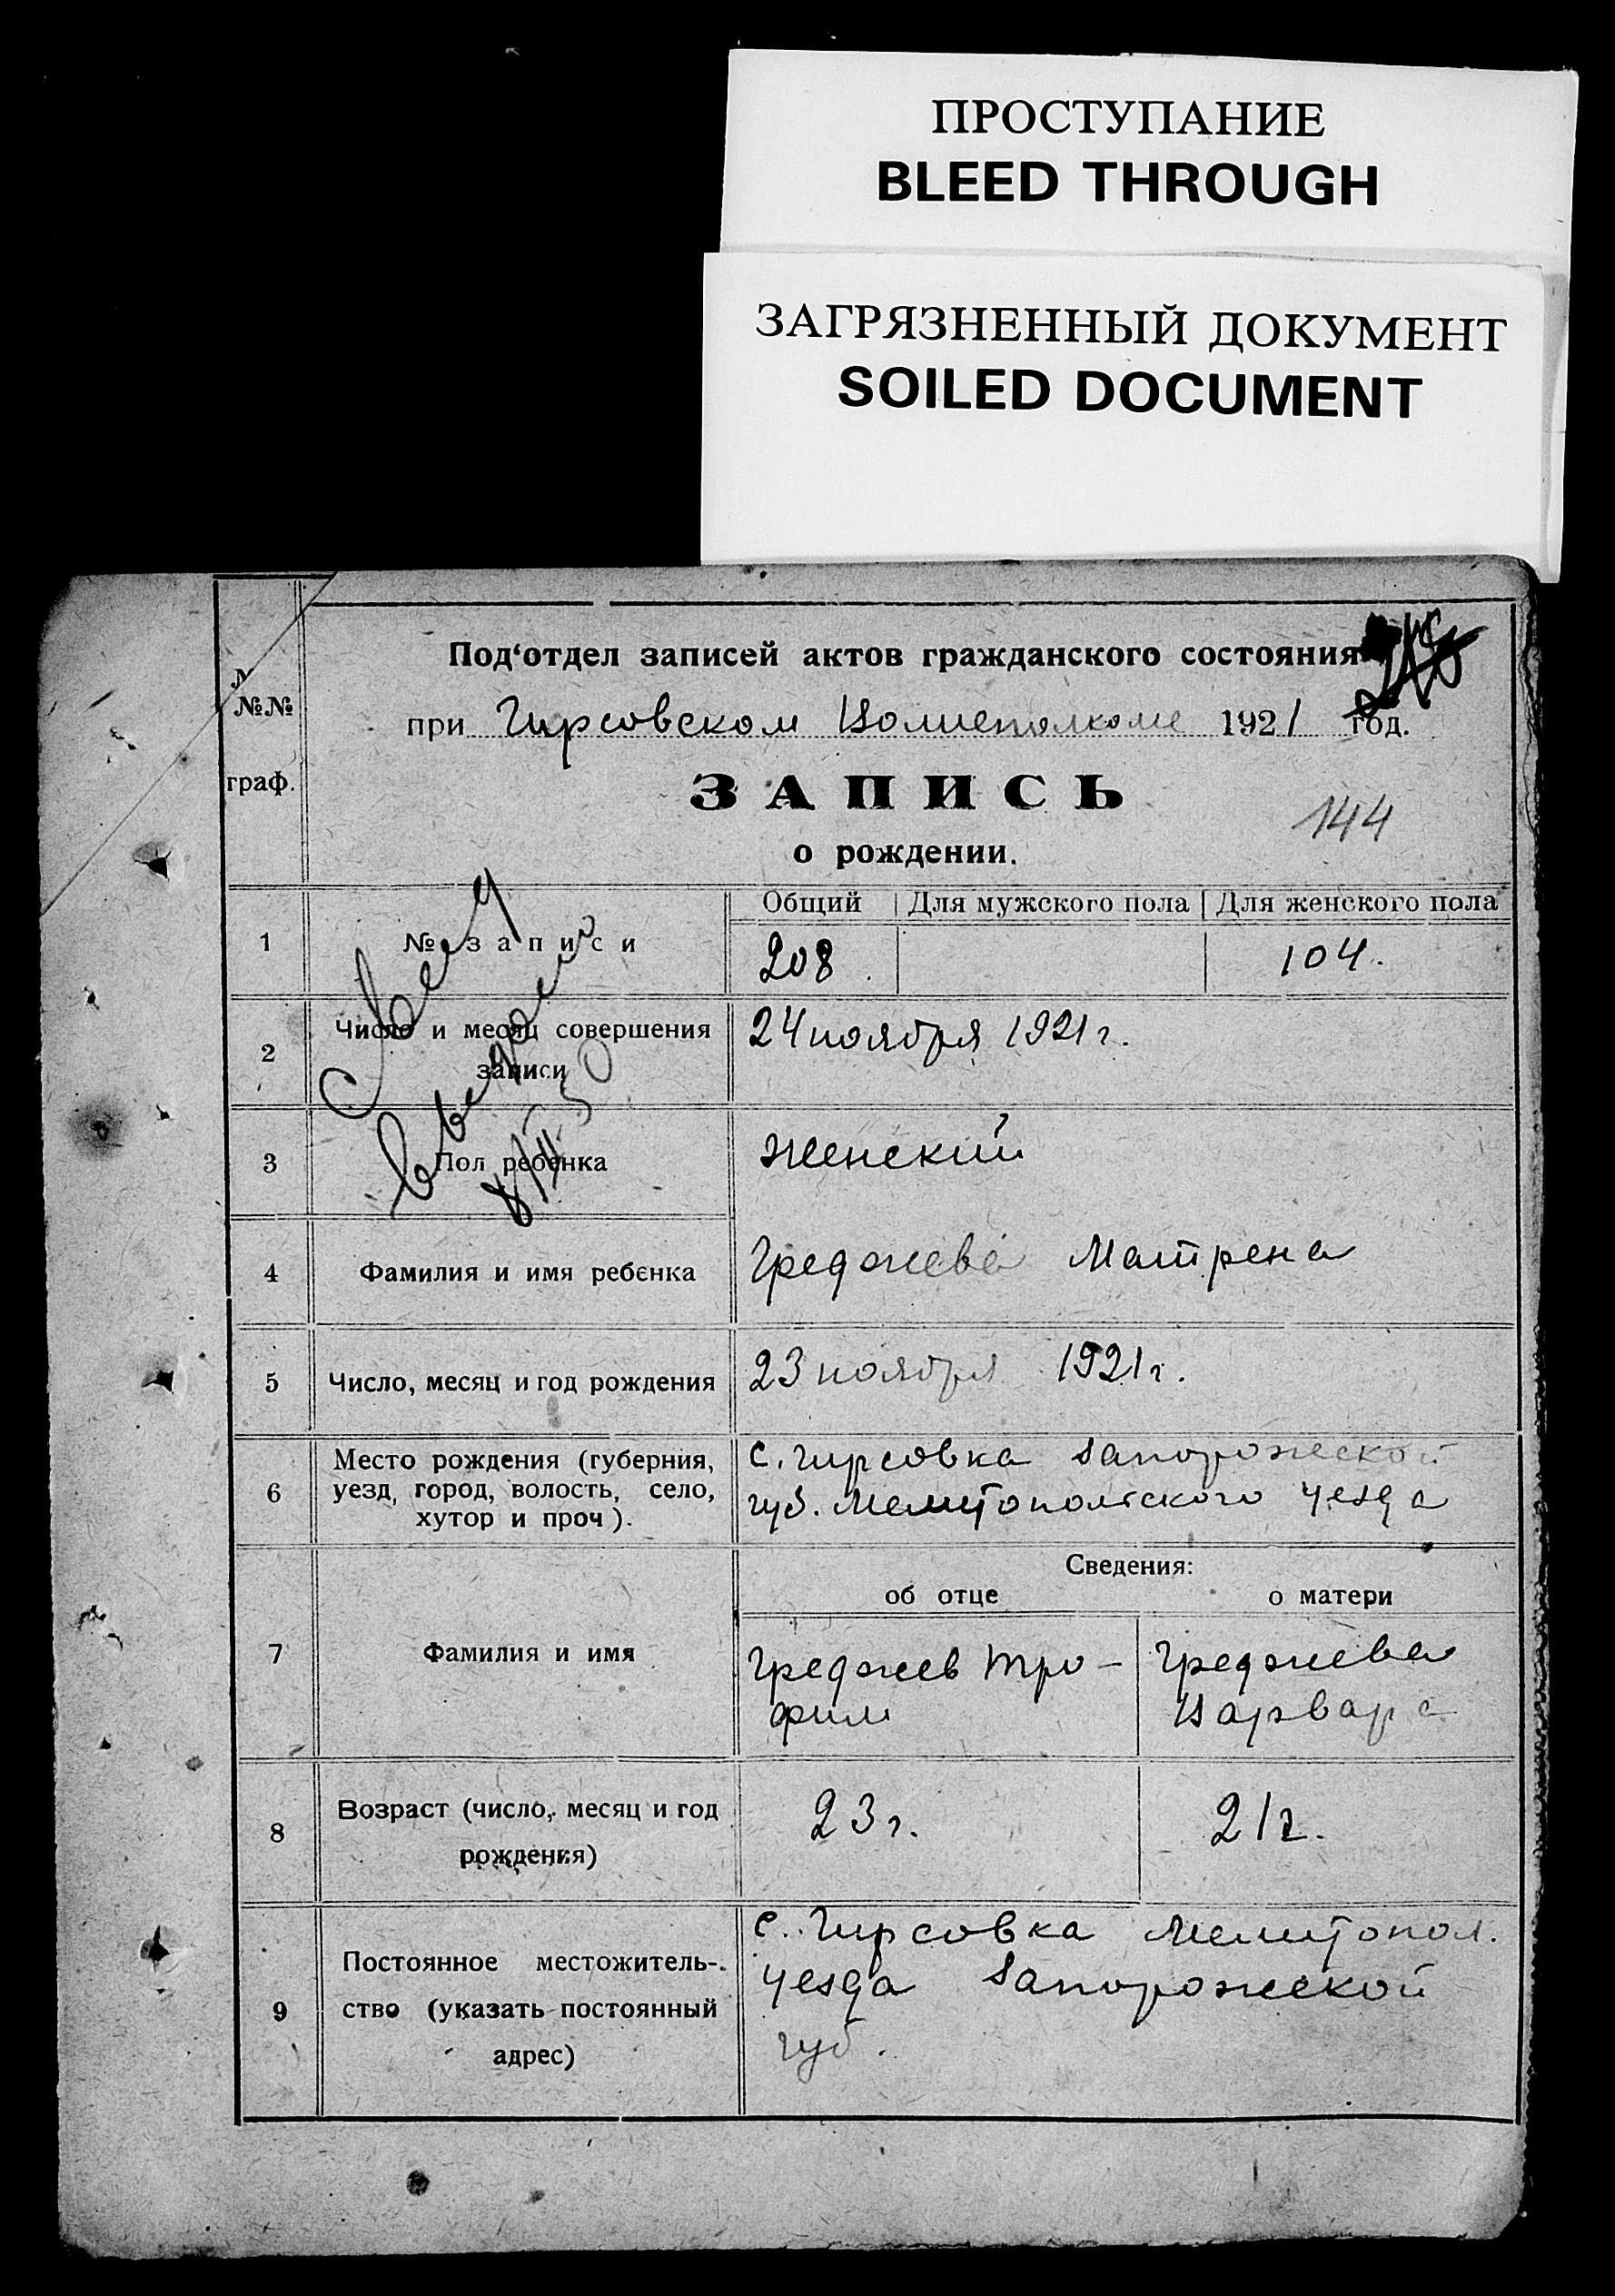 ПРОСТУПАНИЕ
BLEED THROUGH
ЗАГРЯЗНЕННЫЙ ДОКУМЕНТ
SOILED DOCUMENT
№№
граф.
Под‘отдел записей актов гражданского состояния
при Гирсовском Волисполкоме 1921 год.
ЗАПИСЬ
144
о рождении.
1
№ записи
Общий
Для мужского пола
Для женского пола
208
104.
2
Число и месяц совершения
записи
24 ноября 1921 г.
3
Пол ребенка
женский
4
Фамилия и имя ребенка
Греджева Матрена
5
Число, месяц и год рождения
23 ноября 1921 г.
6
Место рождения (губерния,
уезд, город, волость, село,
хутор и проч).
с. Гирсовка Запорожеской
губ. Мелитопольского уезда
Сведения:
об отце
о матери
7
Фамилия и имя
Греджев Тро-
фим
Греджева
Варвара
8
Возраст (число, месяц и год
рождения)
23 г.
21 г.
9
Постоянное местожитель-
ство (указать постоянный
адрес)
с. Гирсовка Мелитопол.
уезда Запорожеской
губ.